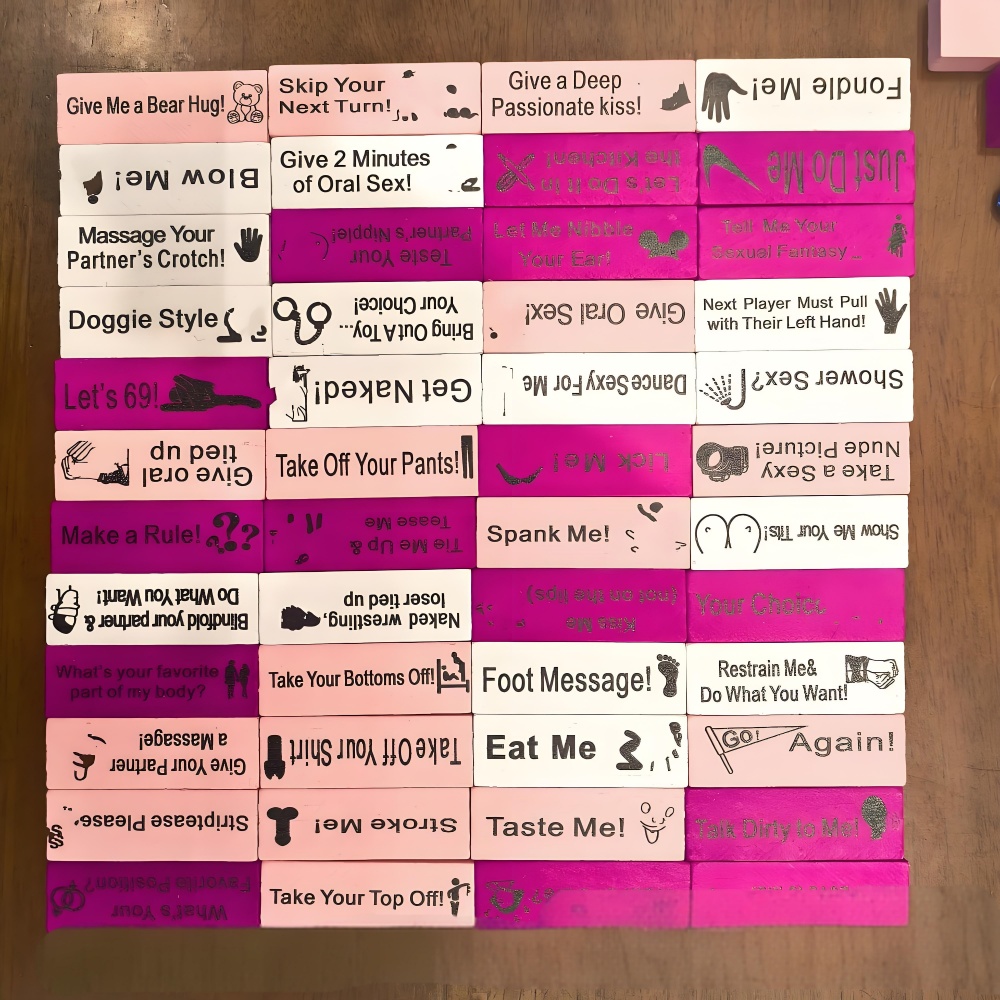 Give Me a Bear Hug!
Skip Your
Next Turn!
Give a Deep
Passionate kiss!
Fondle Me!
Blow Me!
Give 2 Minutes
of Oral Sex!
Let's Do It In
the Kitchen!
Just Do Me
Massage Your
Partner's Crotch!
Teste Your
Partner's Nipple!
Let Me Nibble
Your Ear!
Tell Me Your
Sexual Fantasy
Doggie Style
Bring Out A Toy...
Your Choice!
Give Oral Sex!
Next Player Must Pull
with Their Left Hand!
Let's 69!
Get Naked!
Dance Sexy For Me
Shower Sex?
Give oral
tied up
Take Off Your Pants!
Lick Me!
Take a Sexy
Nude Picture!
Make a Rule!
Tie Me Up &
Tease Me
Spank Me!
Show Me Your Tits!
Blindfold your partner &
Do What You Want!
Naked wrestling,
loser tied up
Kiss Me
(not on the lips)
Your Choice
What's your favorite
part of my body?
Take Your Bottoms Off!
Foot Message!
Restrain Me&
Do What You Want!
Give Your Partner
a Massage!
Take Off Your Shirt
Eat Me
GO!
Again!
Striptease Please
Stroke Me!
Taste Me!
Talk Dirty to Me!
What's Your
Favorite Position?
Take Your Top Off!